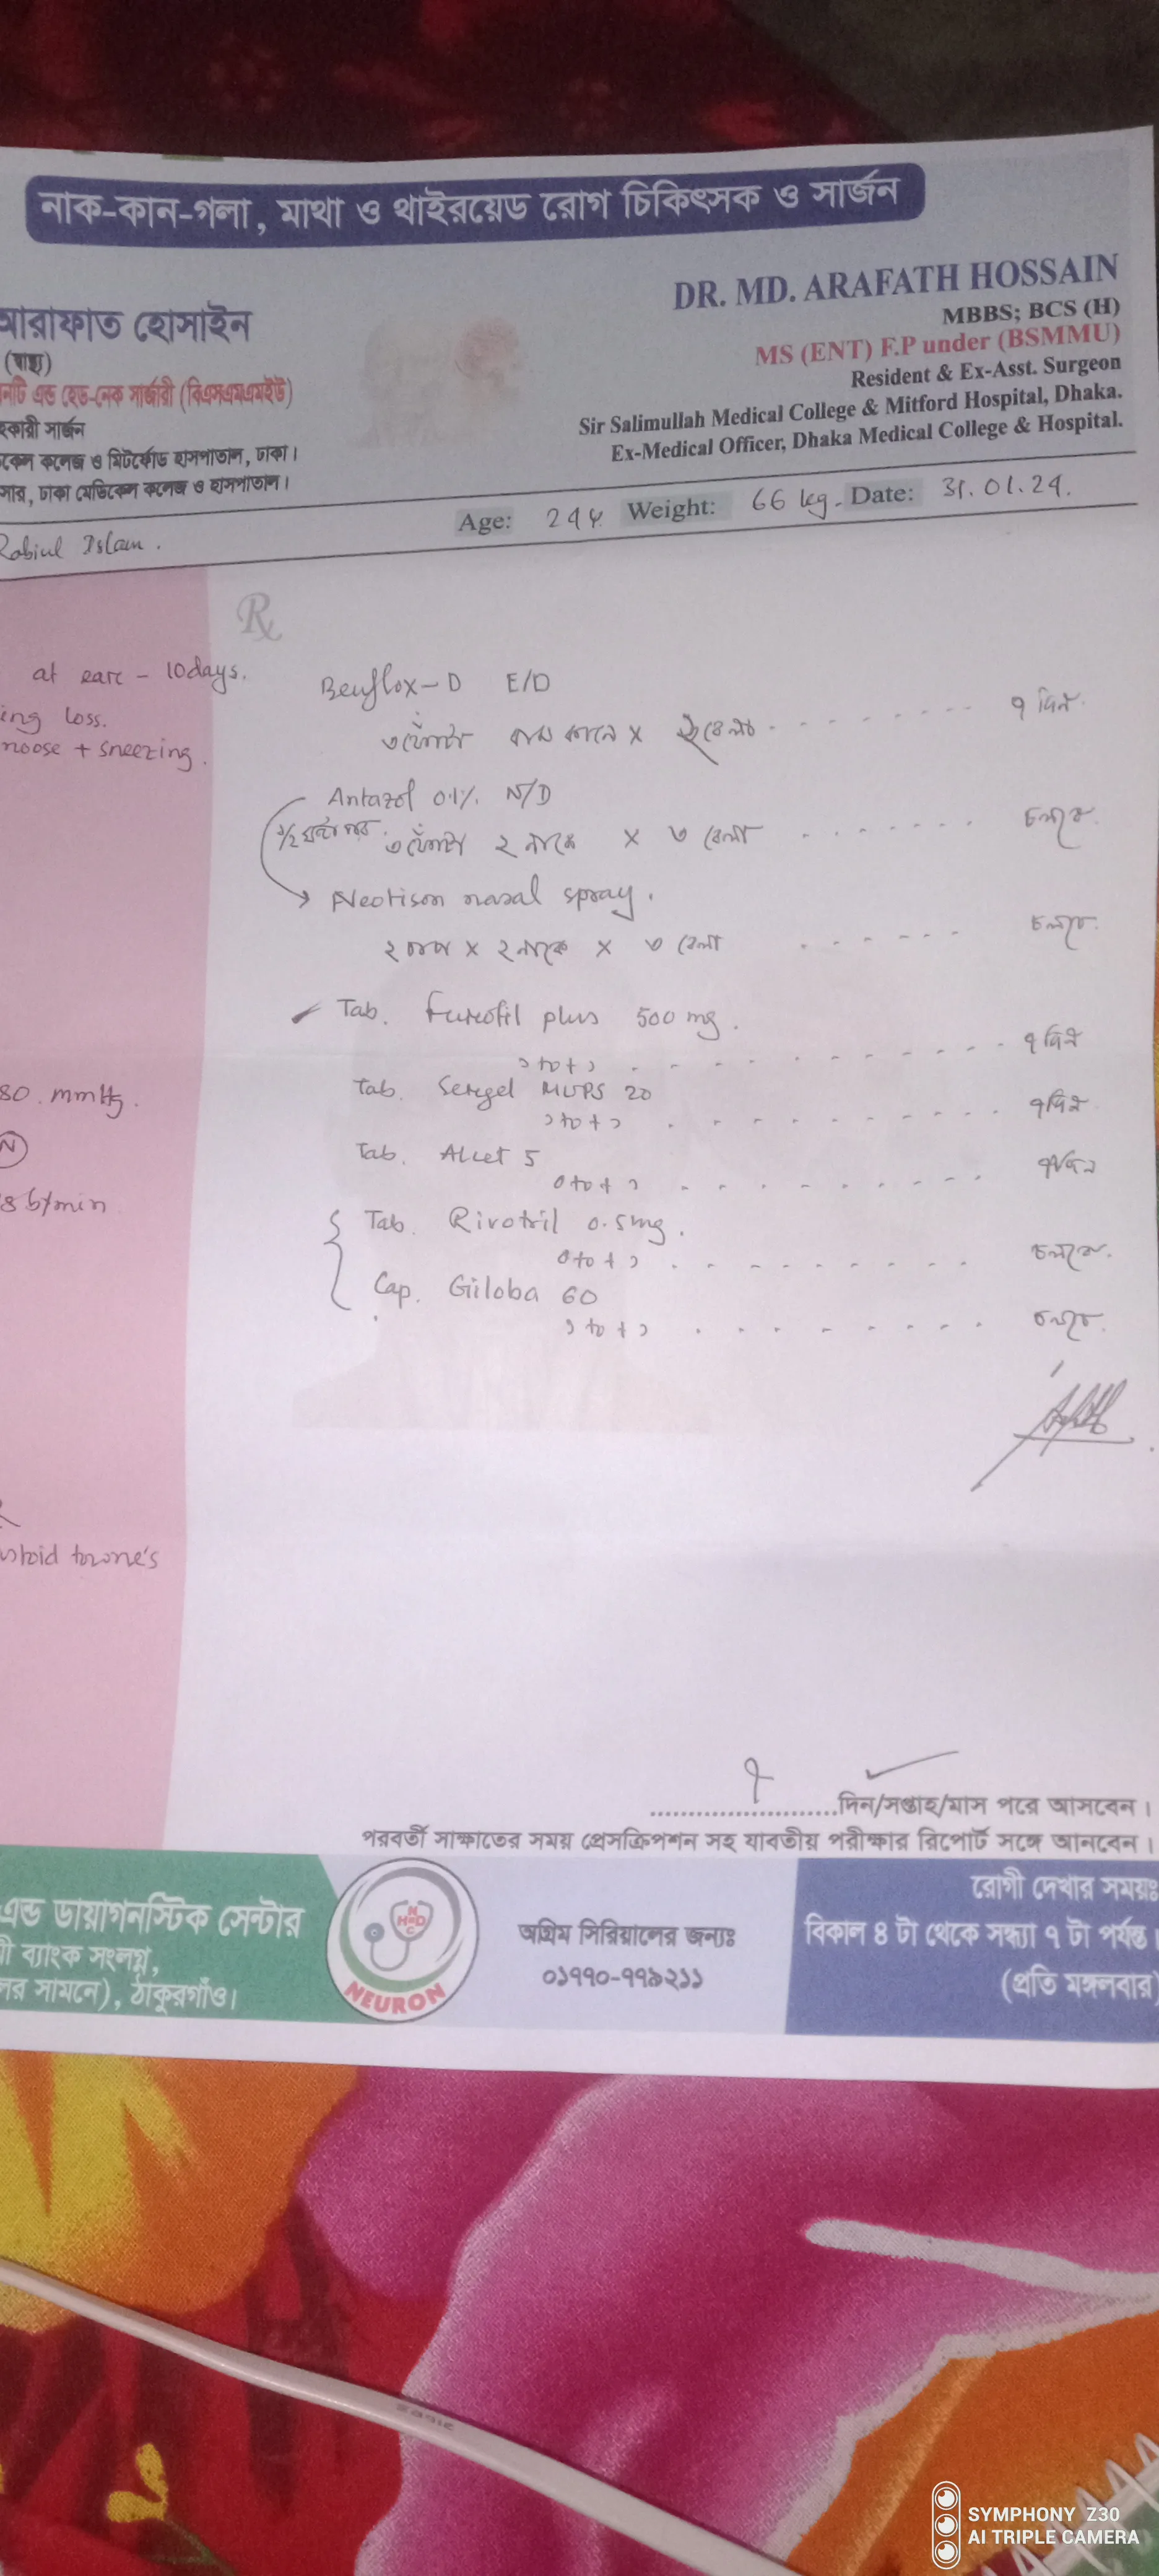 নাক-কান-গলা, মাথা ও থাইরয়েড রোগ চিকিৎসক ও সার্জন
আরাফাত হোসাইন
(স্বাস্থ্য)
নটি এন্ড হেড-নেক সার্জারী (বিএসএমএমইউ)
হকারী সার্জন
কেল কলেজ ও মিটফোর্ড হাসপাতাল, ঢাকা।
সার, ঢাকা মেডিকেল কলেজ ও হাসপাতাল।
DR. MD. ARAFATH HOSSAIN
MBBS; BCS (H)
MS (ENT) F.P under (BSMMU)
Resident & Ex-Asst. Surgeon
Sir Salimullah Medical College & Mitford Hospital, Dhaka.
Ex-Medical Officer, Dhaka Medical College & Hospital.
Rabiul Islam. Age: 24y Weight: 66 kg. Date: 31.01.24.
at ear - 10days.
ing loss.
noose + sneezing.
80. mmHg.
N
8 b/min
Rx
E/D
৩ ফোঁটা বাম কানে x বেলা ৭ দিন
Antazol 0.1% N/D
১/২ ঘন্টা পর
৩ ফোঁটা ২ নাকে x ৩ বেলা চলবে.
nasal spray.
২ চাপ x ২ নাকে x ৩ বেলা চলবে.
Tab. plus 500 mg.
১+০+১ ৭ দিন
Tab. Sergel MUPS 20
১+০+১ ৭ দিন
Tab. Alcet 5
০+০+১ ৭ দিন
Tab. Rivotril 0.5mg.
০+০+১ চলবে.
Cap. Giloba 60
১+০+১ চলবে.
৭ দিন/সপ্তাহ/মাস পরে আসবেন।
পরবর্তী সাক্ষাতের সময় প্রেসক্রিপশন সহ যাবতীয় পরীক্ষার রিপোর্ট সঙ্গে আনবেন।
এন্ড ডায়াগনস্টিক সেন্টার
ী ব্যাংক সংলগ্ন,
লর সামনে), ঠাকুরগাঁও।
NEURON
অগ্রিম সিরিয়ালের জন্যঃ
০১৭৭০-৭৭৯২১১
রোগী দেখার সময়ঃ
বিকাল ৪ টা থেকে সন্ধ্যা ৭ টা পর্যন্ত।
(প্রতি মঙ্গলবার)
SYMPHONY Z30
AI TRIPLE CAMERA